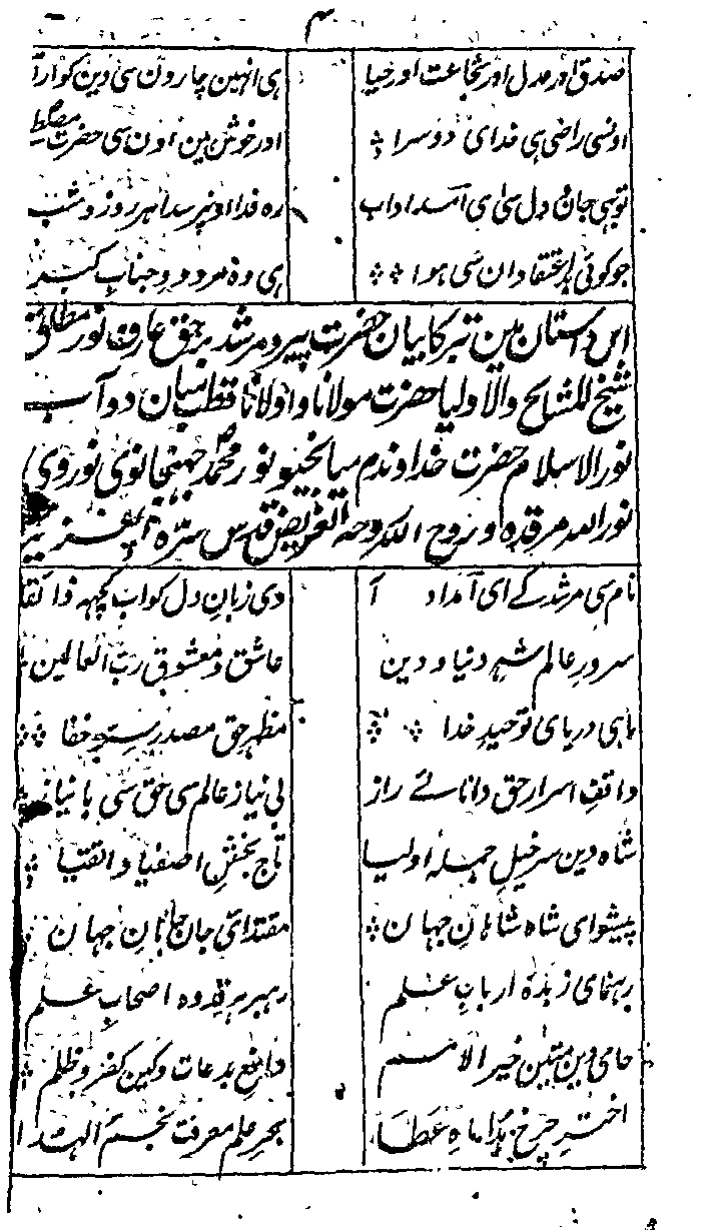 ۴
صدق اور عدل اور شجاعت اور حیا ہی انہین چارون سی دین کو ارا
اونسی راضی ہی خدای دوسرا اور خوش ہین اون سی حضرت مصطفٰے
توبہی جان و دل سی ای امداد اب رہ فدا اونپر سدا ہر روز و شب
جو کوئی بد اعتقاد ان سی ہوا ہی وہ مردود جناب کبریا
اس داستان مین تبرکا بیان حضرت پیر و مرشد برحق عارف نور مطلق
شیخ المشائخ والاولیا حضرت مولانا و اولانا قطب میان دوآب
نور الاسلام حضرت خداوندم میانجیو نور محمدؐ جھنجانوی نوروی
نور اللہ مرقدہ و روح اللہ روحہ قدس سرہ العزیز
نام ہی مرشد کے ای امداد آ دی زبان دل کو اب کچھہ ذائقا
سرور عالم شہ دنیا و دین عاشق و معشوق رب العالمین
ماہی دریای توحید خدا مظہر حق مصدر ستر و خفا
واقف اسرار حق دانائے راز بی نیاز عالم سی حق سی با نیاز
شاہ دین سرخیل جملہ اولیا تاج بخش اصفیا و اتقیا
پیشوای شاہ شاہان جہان مقتدائی جان جانان جہان
رہنمای زبدہ ارباب علم رہبر ہر قدوہ اصحاب علم
حامی دین متین خیر الامم دافع بدعات و کین کفر و ظلم
اختر چرخ ہدا ماہ عطا بحر علم معرفت نجم الہدا